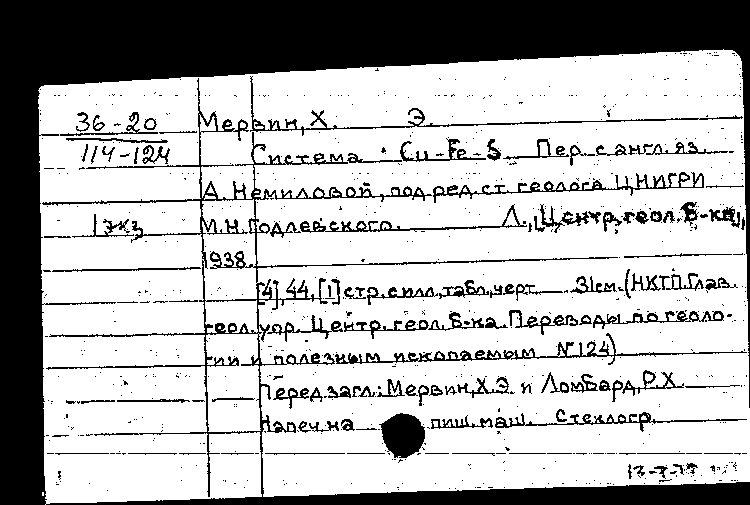 36-20 Мервин, Х. Э.
114-124 Система Cu-Fe-S. Пер. с англ. яз.
А. Немиловой, под ред. ст. геолога ЦНИГРИ
1 экз М.Н. Годлевского. Л., Центр. геол. б-ка,
1938.
[4], 44, [1] стр. с илл., табл., черт. 31см. (НКТП. Глав.
геол. упр. Центр. геол. б-ка. Переводы по геоло-
гии и полезным ископаемым №124)
Перед загл.: Мервин, Х.Э. и Ломбард, Р.Х.
Напеч. на пиш. маш. Стеклогр.